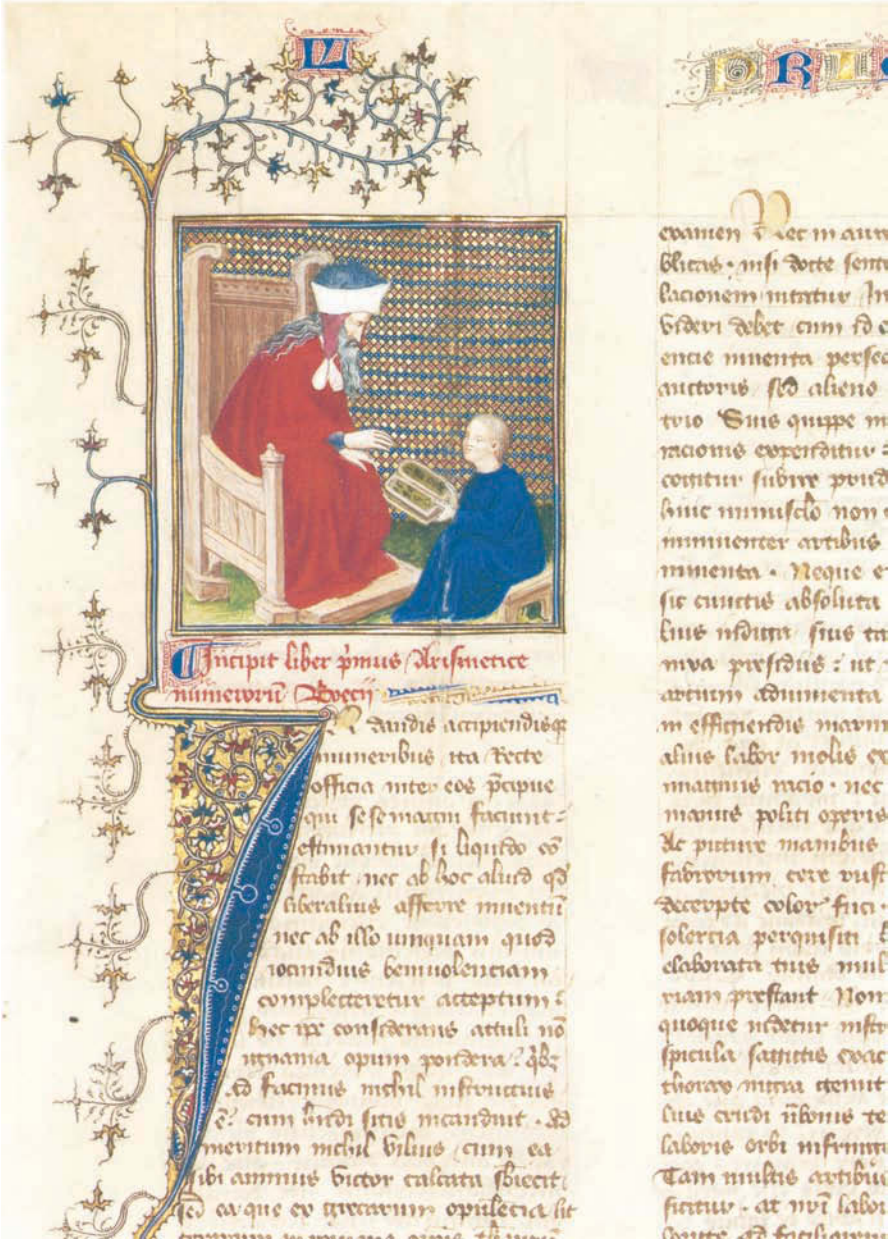 LI
PRIM
Incipit liber p̄mus Arismetice
numerorū Boecii
In dandis accipiendisq̄
muneribus ita Recte
officia inter eos p̄cipue
qui sese magni faciunt
estimantur si liquido cō
stabit nec ab hoc aliud qd̄
liberalius afferre inuentū
nec ab illo umquam quod
iocundius beniuolenciam
complecteretur acceptum
hec ip̄e considerans attuli nō
ignauia opum pondera quibꝫ
ad facinus nichil instructius
ē cum hn̄di sitis incanduit. Ad
meritum nichil vilius cum ea
sibi animus victor calcata sbiecit
sed ea que ex grecarum opulēcia lit
examen
blicas nisi docte sente
lacionem nititur In
Videri debet cum id e
encie inuenta persec
auctoris sed alieno
trio Suis quippe in
racionis expenditur
cogitur subire prud
huic munusclo non
imminenter artibus
minenta. Neque e
sit cunctis absoluta
lius nisura
niua presidiis ut
artium
in efficiendis marm
alius labor molis ex
imaginis racio. nec
manus politi operis
Ac picture manibus
fabrorum. cere rust
decerpte color fuci
solercia perquisiti
elaborata tuis mul
riam prestant Non
quoque uidetur instr
spicula sagittis exac
thorax nigra gemit
lius crudi ūbonis te
laboris orbi infring
Tam multis artibus
ficitur. at nr̄i labor